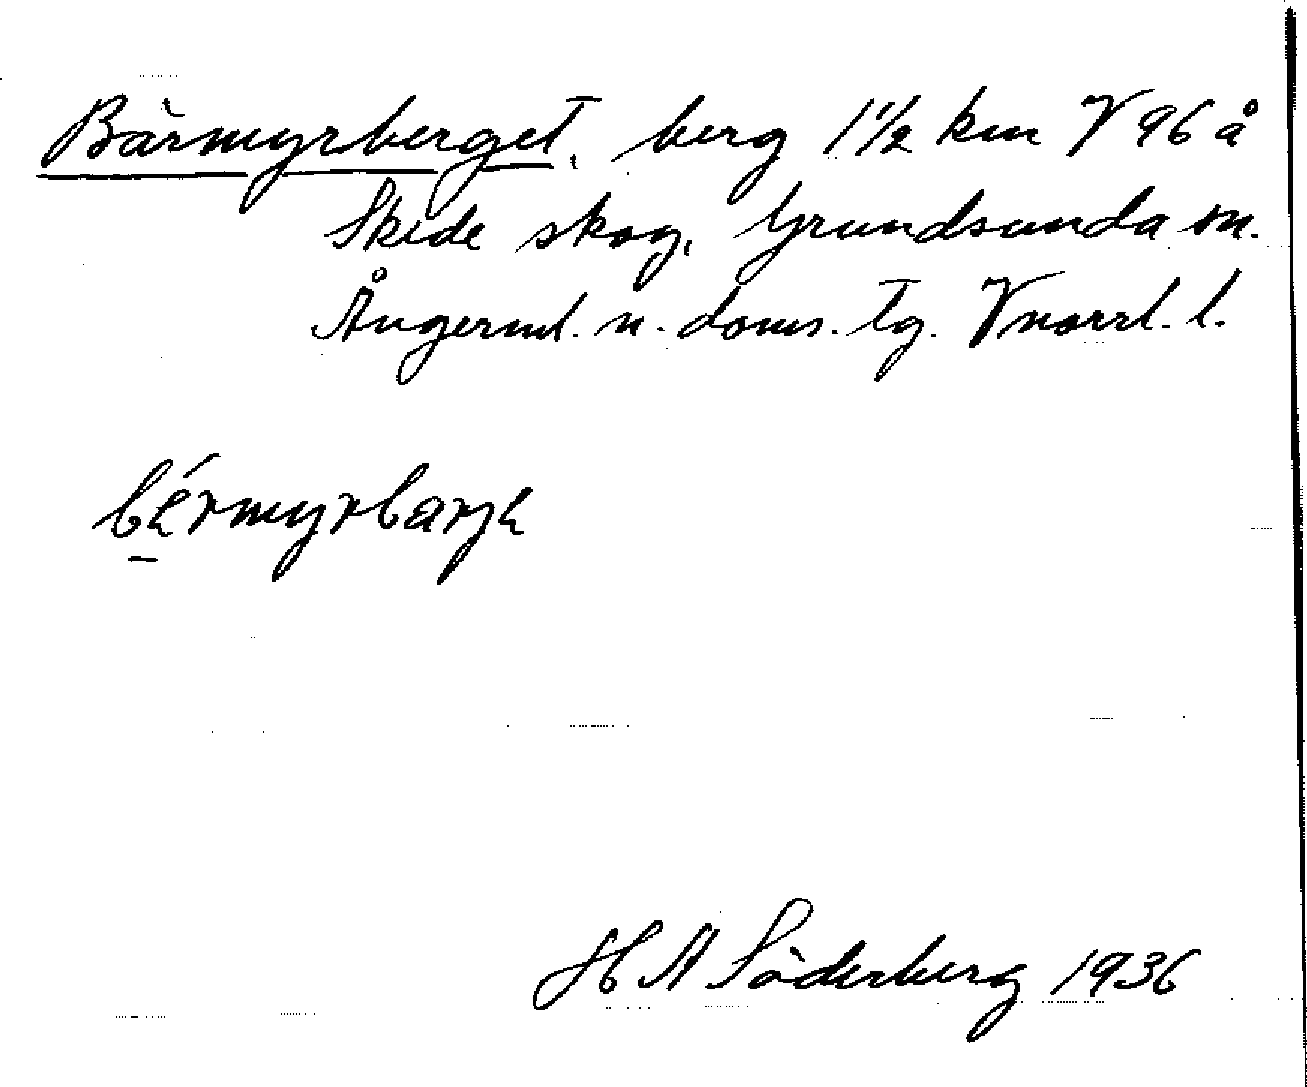 Bärmyrberget, berg 1 1/2 km V 96 å
Skede skog, Grundsunda sn.
Ångerml. n. doms. tg. Vnorrl. l.
bérmyrbarjə
H A Söderberg 1936